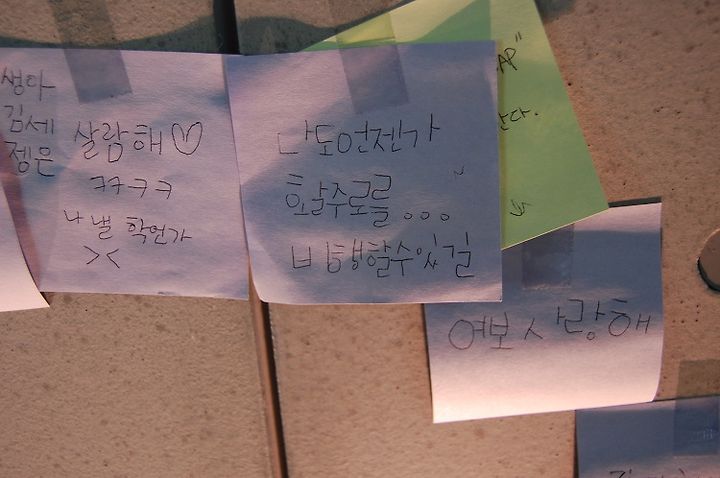 생아
김세
젱은
살람해♡
ㅋㅋㅋㅋ
나 낼 학언가
><
나도언젠가
활주로를...~
비행할수있길
AP"
난다.
여보 사랑해